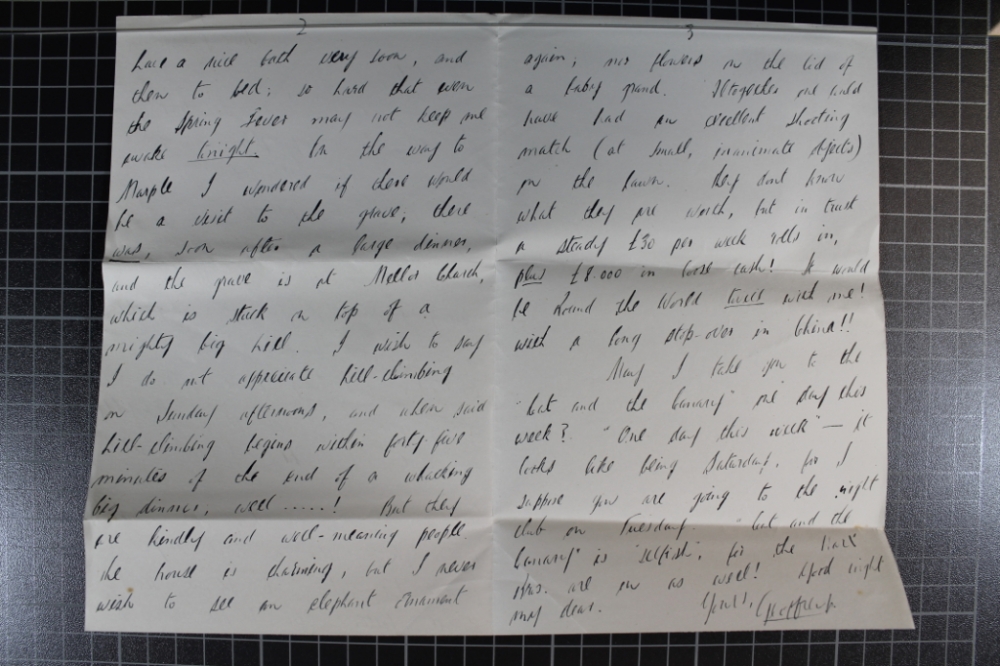 2
have a nice bath very soon, and
then to bed; so hard that even
the Spring Fever may not keep me
awake tonight. On the way to
Marple I wondered if there would
be a visit to the grave; there
was, soon after a large dinner,
and the grave is at Mellor Church,
which is stuck on top of a
mighty big hill. I wish to say
I do not appreciate hill-climbing
on Sunday afternoons, and when said
hill-climbing begins within forty-five
minutes of the end of a whacking
big dinner, well .....! But they
are kindly and well-meaning people.
The house is charming, but I never
wish to see an elephant ornament
3
again; nor flowers on the lid of
a baby grand. Altogether one could
have had an excellent shooting
match (at small, inanimate objects)
on the lawn. They don't know
what they are worth, but in trust
a steady £30 per week rolls in,
plus £8.000 in loose cash! It would
be Round the World twice with me!
with a long stop-over in China!!
May I take you to the
"Cat and the Canary" one day this
week? "One day this week" — it
looks like being Saturday, for I
suppose you are going to the night
club on Tuesday. "Cat and the
Canary" is "selfish", for the Marx
Bros. are on as well! Good night
my dear. Yours, Geoffrey